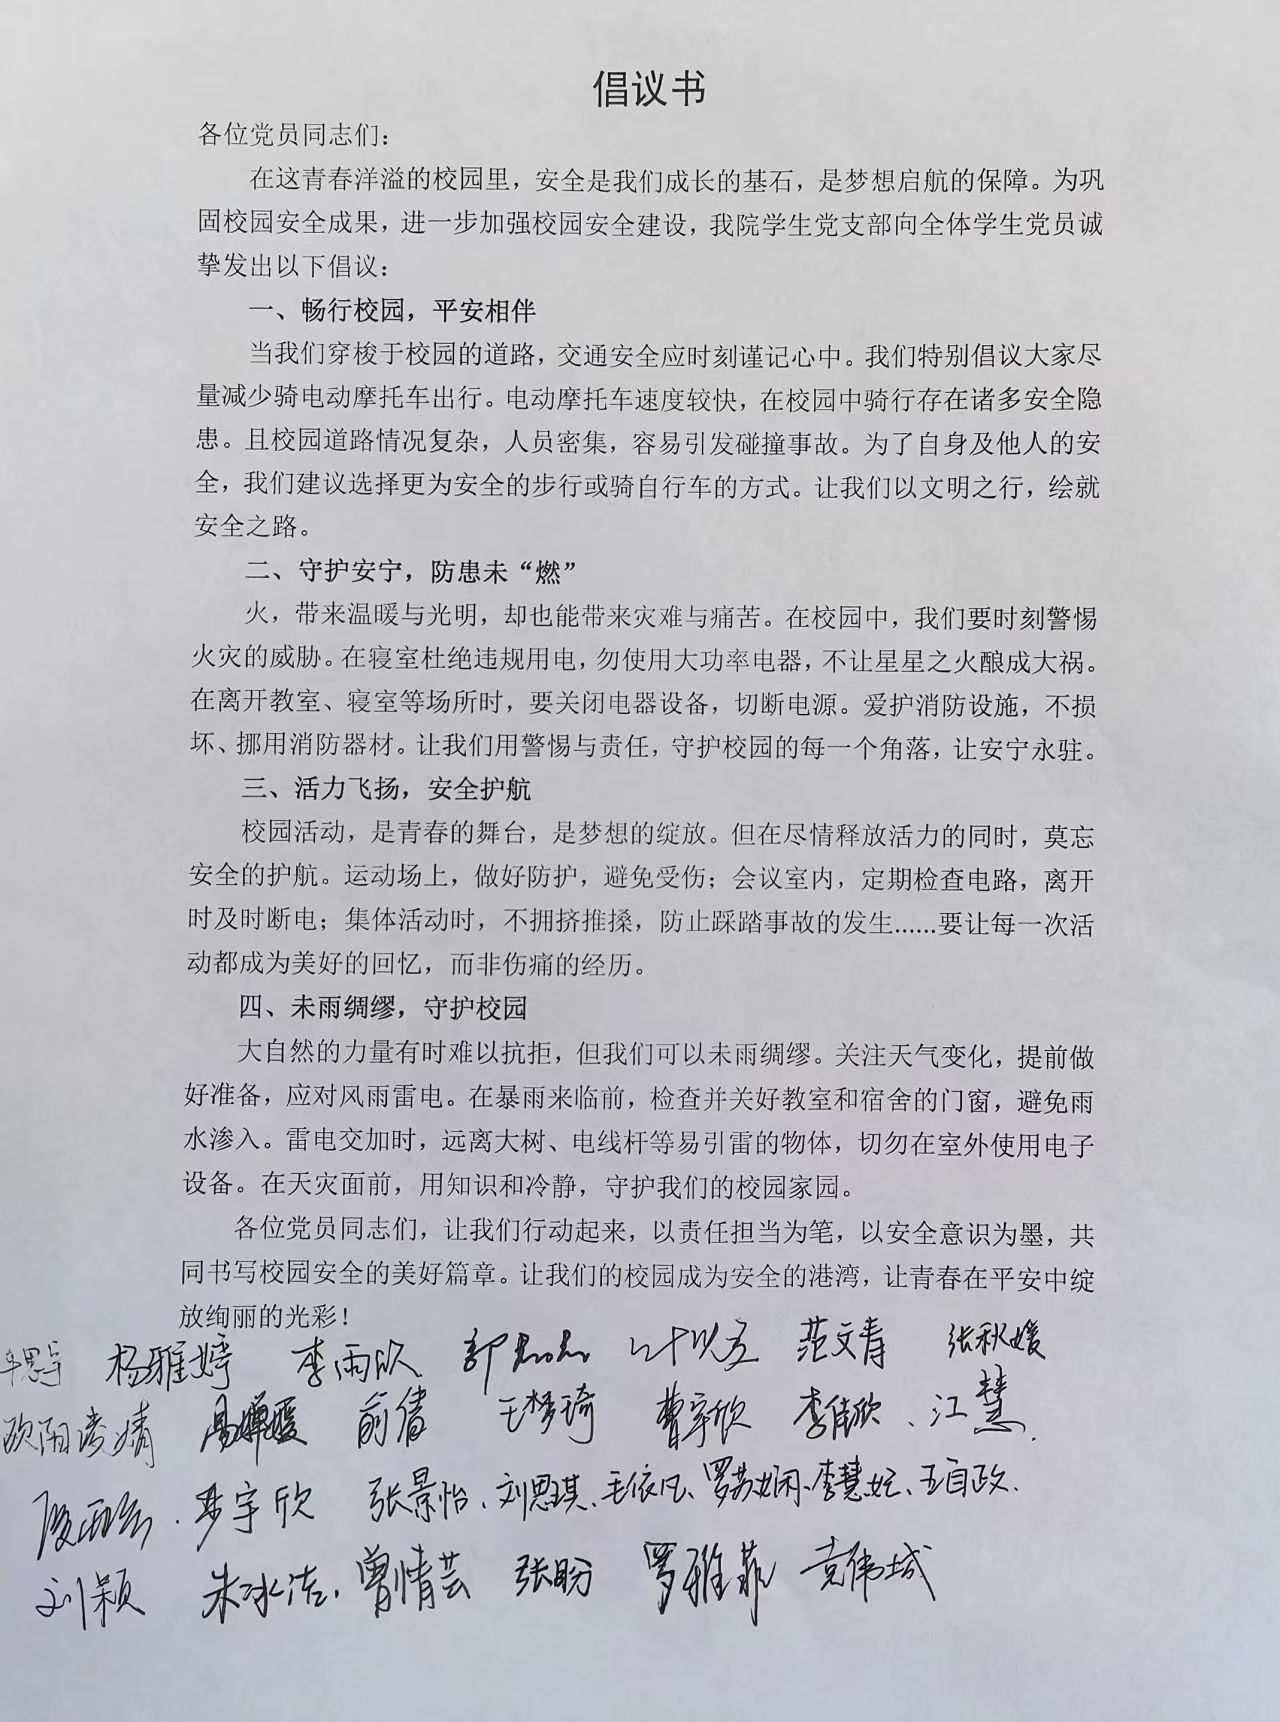 倡议书
各位党员同志们：
在这青春洋溢的校园里，安全是我们成长的基石，是梦想启航的保障。为巩
固校园安全成果，进一步加强校园安全建设，我院学生党支部向全体学生党员诚
挚发出以下倡议：
一、畅行校园，平安相伴
当我们穿梭于校园的道路，交通安全应时刻谨记心中。我们特别倡议大家尽
量减少骑电动摩托车出行。电动摩托车速度较快，在校园中骑行存在诸多安全隐
患。且校园道路情况复杂，人员密集，容易引发碰撞事故。为了自身及他人的安
全，我们建议选择更为安全的步行或骑自行车的方式。让我们以文明之行，绘就
安全之路。
二、守护安宁，防患未“燃”
火，带来温暖与光明，却也能带来灾难与痛苦。在校园中，我们要时刻警惕
火灾的威胁。在寝室杜绝违规用电，勿使用大功率电器，不让星星之火酿成大祸。
在离开教室、寝室等场所时，要关闭电器设备，切断电源。爱护消防设施，不损
坏、挪用消防器材。让我们用警惕与责任，守护校园的每一个角落，让安宁永驻。
三、活力飞扬，安全护航
校园活动，是青春的舞台，是梦想的绽放。但在尽情释放活力的同时，莫忘
安全的护航。运动场上，做好防护，避免受伤；会议室内，定期检查电路，离开
时及时断电；集体活动时，不拥挤推搡，防止踩踏事故的发生……要让每一次活
动都成为美好的回忆，而非伤痛的经历。
四、未雨绸缪，守护校园
大自然的力量有时难以抗拒，但我们可以未雨绸缪。关注天气变化，提前做
好准备，应对风雨雷电。在暴雨来临前，检查并关好教室和宿舍的门窗，避免雨
水渗入。雷电交加时，远离大树、电线杆等易引雷的物体，切勿在室外使用电子
设备。在天灾面前，用知识和冷静，守护我们的校园家园。
各位党员同志们，让我们行动起来，以责任担当为笔，以安全意识为墨，共
同书写校园安全的美好篇章。让我们的校园成为安全的港湾，让青春在平安中绽
放绚丽的光彩！
杨雅婷 李雨欣 范文青 张秋媛
俞倩 王梦琦 曹宇欣 李佳欣、江慧
李宇欣 张景怡、刘思琪、毛依凡、
刘颖 朱冰洁、曾情芸 张盼 罗雅菲 袁伟城